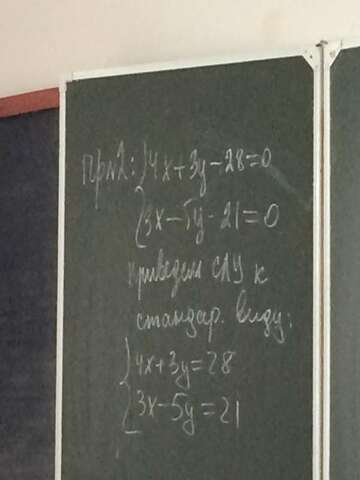 Пр.2: {4x+3y-28=0
{3x-5y-21=0
приведем СЛУ к
стандар. виду:
{4x+3y=28
{3x-5y=21